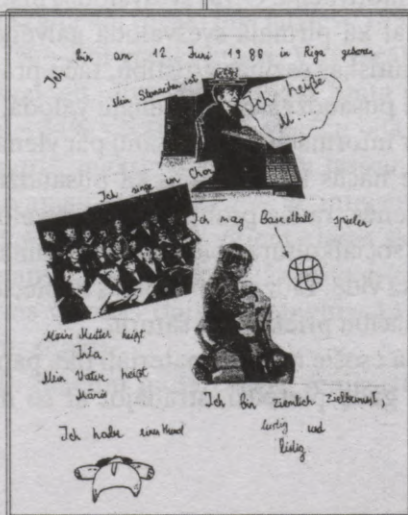 Ich bin am 12. Juni 1988 in Riga geboren
Mein Sternzeichen ist
Ich heiße
M....
Ich singe im Chor
Ich mag Basketball spielen
Meine Mutter heißt
Inta
Mein Vater heißt
Māris
Ich bin ziemlich zielbewusst,
lustig und
listig
Ich habe einen Hund